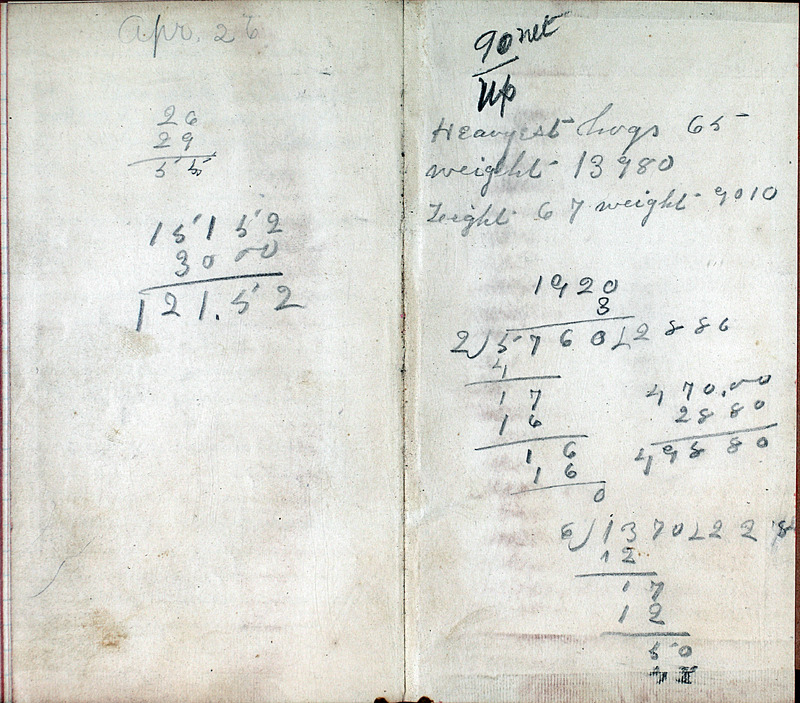 Apr. 26
26
29
55
15152
3000
121.52
90 net
up
Heavyest hogs 65
weight 13980
Leight 67 weight 9010
1920
3
2)5760(2886
4
17
16
16
16
0
470.00
2880
49880
6)1370(228
12
17
12
50